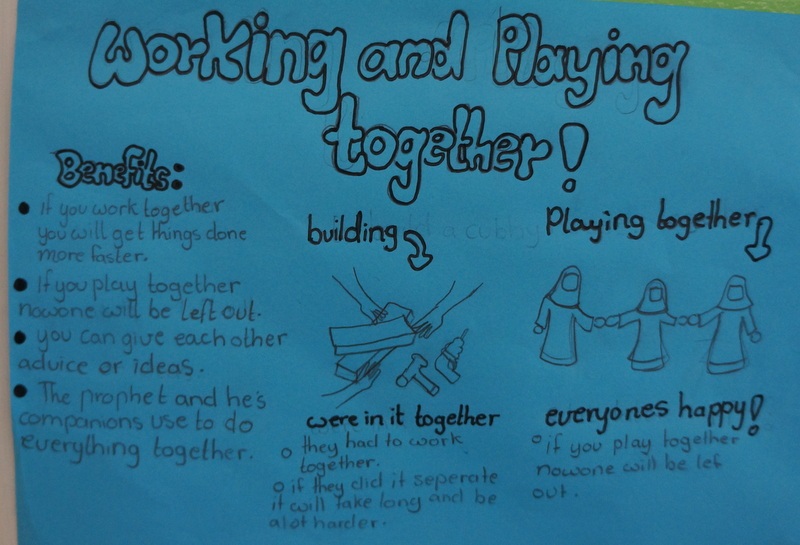 Working and Playing
together!
Benefits:
● If you work together
you will get things done
more faster.
● If you play together
nowone will be left out.
● you can give each other
advice or ideas.
● The prophet and he's
companions use to do
everything together.
building
were in it together
○ they had to work
together.
○ if they did it seperate
it will take long and be
alot harder.
Playing together
everyones happy!
○ if you play together
nowone will be lef
out.